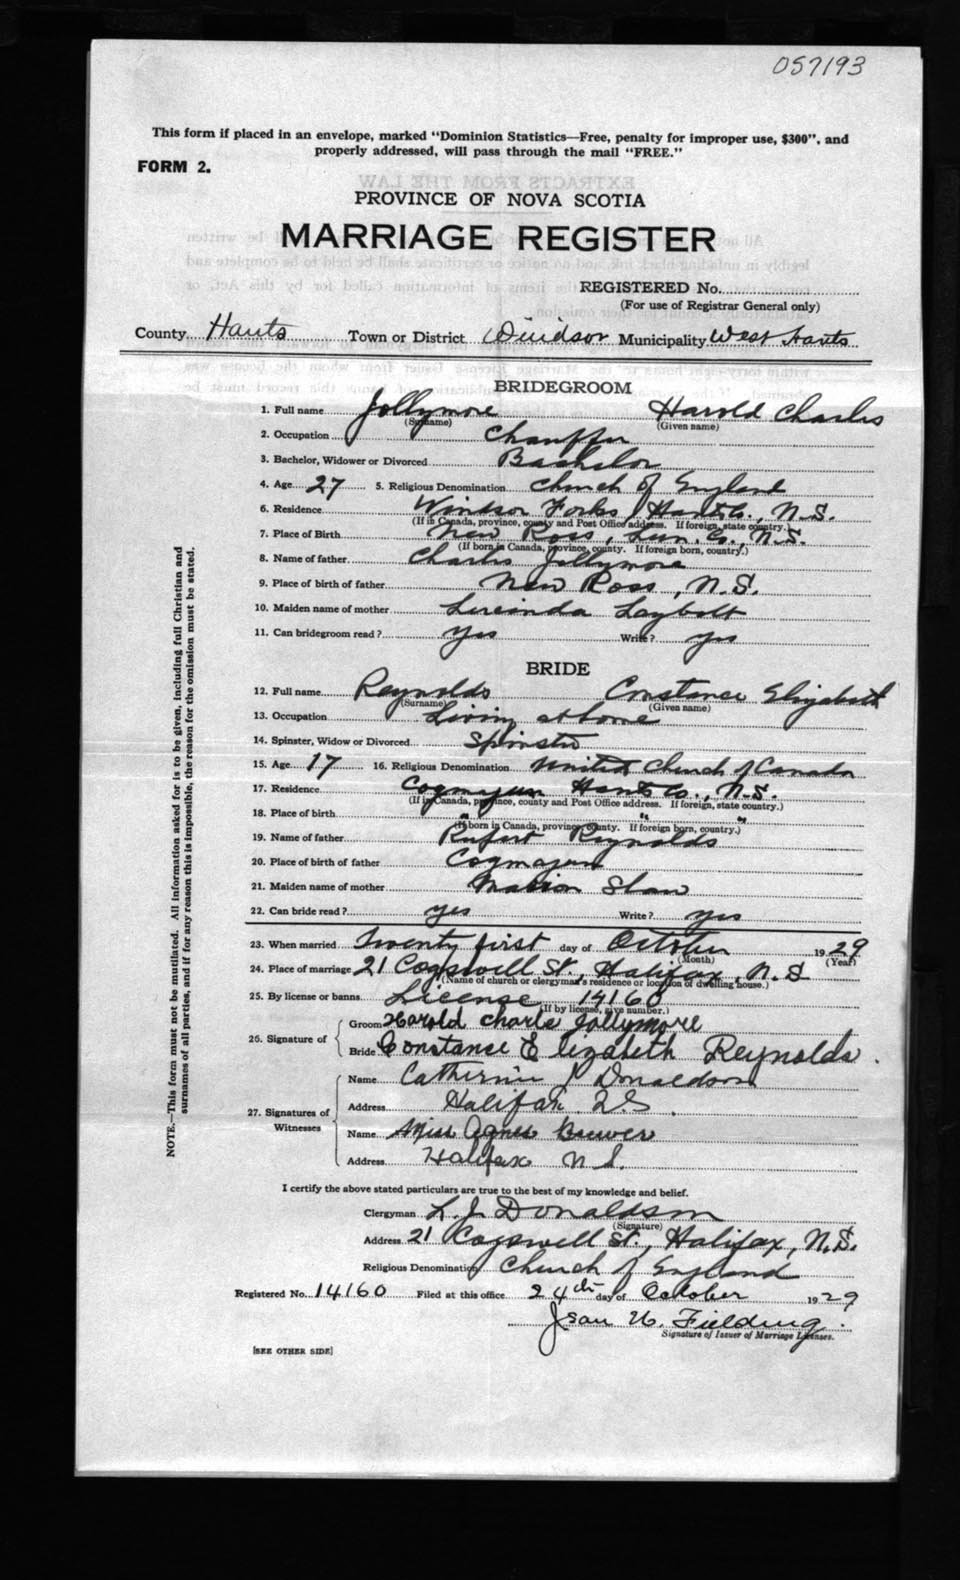 057193
This form if placed in an envelope, marked "Dominion Statistics—Free, penalty for improper use, $300", and
properly addressed, will pass through the mail "FREE."
FORM 2.
PROVINCE OF NOVA SCOTIA
MARRIAGE REGISTER
REGISTERED No.
(For use of Registrar General only)
County Hants Town or District Windsor Municipality West Hants
BRIDEGROOM
1. Full name Jollymore Harold Charles
(Surname) (Given name)
2. Occupation Chauffer
3. Bachelor, Widower or Divorced Bachelor
4. Age 27 5. Religious Denomination Church of England
6. Residence Windsor Forks, Hants Co., N.S.
(If in Canada, province, county and Post Office address. If foreign, state country.)
7. Place of Birth New Ross, Lun. Co., N.S.
(If born in Canada, province, county. If foreign born, country.)
8. Name of father Charles Jollymore
9. Place of birth of father New Ross, N.S.
10. Maiden name of mother Lucinda Laybolt
11. Can bridegroom read? yes Write? yes
BRIDE
12. Full name Reynolds Constance Elizabeth
(Surname) (Given name)
13. Occupation Living at home
14. Spinster, Widow or Divorced Spinster
15. Age 17 16. Religious Denomination United Church of Canada
17. Residence Cogmagun Hants Co., N.S.
(If in Canada, province, county and Post Office address. If foreign, state country.)
18. Place of birth " " "
(If born in Canada, province, county. If foreign born, country.)
19. Name of father Rupert Reynolds
20. Place of birth of father Cogmagun
21. Maiden name of mother Marion Shaw
22. Can bride read? yes Write? yes
23. When married Twenty first day of October 1929
(Month) (Year)
24. Place of marriage 21 Cogswell St., Halifax, N.S
(Name of church or clergyman's residence or location of dwelling house.)
25. By license or banns License 14160
(If by license, give number.)
26. Signature of Groom Harold Charle Jollymore
Bride Constance Elizabeth Reynolds.
27. Signatures of Witnesses
Name Catherine J Donaldson
Address Halifax N.S.
Name Miss Agnes Brewer
Address Halifax N S.
I certify the above stated particulars are true to the best of my knowledge and belief.
Clergyman L. J. Donaldson
(Signature)
Address 21 Cogswell St., Halifax, N.S.
Religious Denomination Church of England
Registered No. 14160 Filed at this office 24th day of October 1929
Jean U. Fielding.
Signature of Issuer of Marriage Licenses.
[SEE OTHER SIDE]
NOTE.—This form must not be mutilated. All information asked for is to be given, including full Christian and
surnames of all parties, and if for any reason this is impossible, the reason for the omission must be stated.